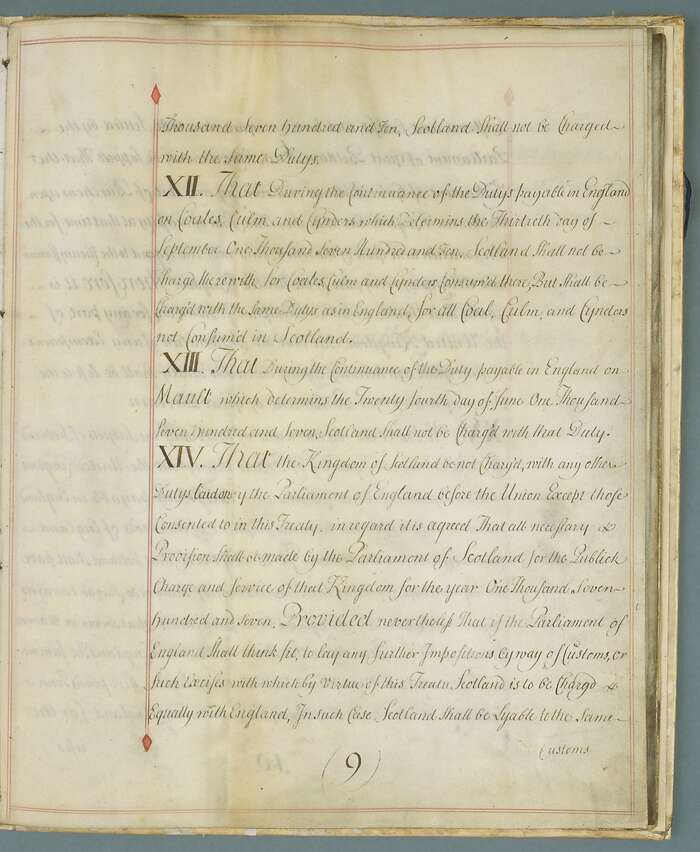 Thousand Seven Hundred and Ten, Scotland Shall not be Charged
with the same Dutys.
XII. That During the Continuance of the Dutys payable in England
on Coales, Culm and Cynders which Determins the Thirtieth day of
September One Thousand Seven Hundred and Ten, Scotland Shall not be
Charge therewith for Coales, Culm and Cynders Consum'd there, But Shall be
Charg'd with the Same Dutys as in England, for all Coal, Culm, and Cynders
not Consum'd in Scotland.
XIII. That During the Continuance of the Duty payable in England on
Mault which determins the Twenty fourth day of June One Thousand
Seven Hundred and Seven, Scotland Shall not be Charg'd with that Duty.
XIV. That the Kingdom of Scotland be not Charg'd, with any other
Dutys laid on by the Parliament of England before the Union Except those
Consented to in this Treaty, in regard it is agreed That all necessary &
Provision Shall be made by the Parliament of Scotland for the Publick
Charge and Service of that Kingdom for the year One Thousand Seven
Hundred and Seven, Provided nevertheless That if the Parliament of
England Shall think fit, to lay any further Impositions by way of Customs, or
Such Excises with which by virtue of this Treaty, Scotland is to be Charg'd &
Equally with England, In such Case Scotland Shall be Lyable to the Same
Customs
(9)